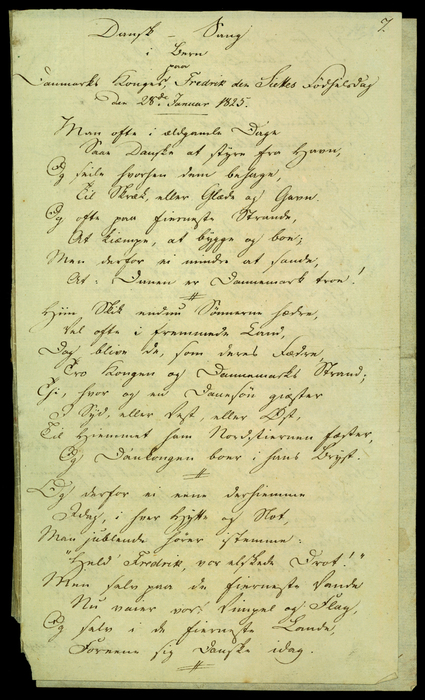 7.
Dansk – Sang
i Bern
paa
Danmarks Konges, Fredrik den Siettes Fødselsdag
den 28de Januar 1825.
Man ofte i ældgamle Dage
Saae Danske at styre fra Havn,
Og seile hvorhen dem behage,
Til Skræk, eller Glæde og Gavn.
Og ofte paa fierneste Strande,
At kiæmpe, at bygge og boe;
Men derfor ei mindre at sande,
At: Danen er Dannemark troe!
Hiin Skik endnu Sønnerne hædre,
Vel ofte i fremmede Land,
Dog blive de, som deres Fædre,
Tro Kongen og Dannemarks Strand;
Thi, hvor og en Danesøn giæster
I Syd, eller Vest, eller Øst,
Til Hiemmet ham Nordstiernen fæster,
Og Dankongen boer i hans Bryst.
Og derfor ei eene derhiemme
Idag, i hver Hytte og Slot,
Man jublende hører istemme:
"Held Fredrik, vor elskede Drot!"
Men selv paa de fierneste Vande
Nu vaier vor Vimpel og Flag,
Og selv i de fierneste Lande,
Foreene sig Danske idag.